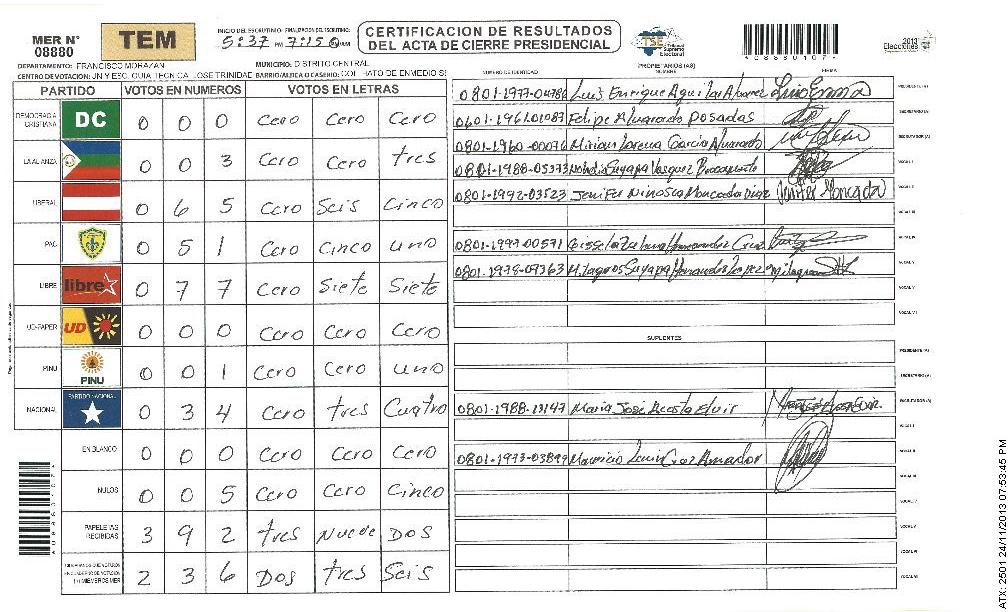 MER N° 08880
TEM
INICIO DEL ESCRUTINIO: FINALIZACIÓN DEL ESCRUTINIO:
5:37 PM 7:15
CERTIFICACION DE RESULTADOS
DEL ACTA DE CIERRE PRESIDENCIAL
TSE Tribunal Supremo Electoral
2013 Elecciones
DEPARTAMENTO: FRANCISCO MORAZAN MUNICIPIO: DISTRITO CENTRAL
CENTRO DE VOTACION: JN Y ESC. GUIA TECNICA JOSE TRINIDAD BARRIO/ALDEA O CASERIO: COL HATO DE ENMEDIO
PARTIDO VOTOS EN NUMEROS VOTOS EN LETRAS
DEMOCRACIA CRISTIANA DC 0 0 0 Cero Cero Cero
LA ALIANZA 0 0 3 Cero Cero tres
LIBERAL 0 6 5 Cero Seis Cinco
PAC 0 5 1 Cero Cinco uno
LIBRE libre 0 7 7 Cero Siete Siete
UD-FAPER UD 0 0 0 Cero Cero Cero
PINU PINU 0 0 1 Cero Cero uno
NACIONAL PARTIDO NACIONAL 0 3 4 Cero tres Cuatro
EN BLANCO 0 0 0 Cero Cero Cero
NULOS 0 0 5 Cero Cero Cinco
PAPELETAS RECIBIDAS 3 9 2 tres Nueve Dos
2 3 6 Dos tres Seis
NUMERO DE IDENTIDAD PROPIETARIOS (AS) NOMBRE FIRMA
0801-1977-04786 Luis Enrique Aguilar Alvarez PRESIDENTE (A)
0601-1961-01087 Felipe Alvarado Posadas SECRETARIO (A)
0801-1960-00076 Miriam Lorena Garcia Alvarado ESCRUTADOR (A)
0801-1988-05373 Suyapa Vasquez VOCAL I
0801-1992-03523 Jenifer Ninosca Moncada Diaz Jenifer Moncada VOCAL II
VOCAL III
0801-1997-00571 Hernandez Cruz VOCAL IV
0801-1978-09363 Milagros Suyapa Hernandez Lopez VOCAL V
SUPLENTES
PRESIDENTE (A)
SECRETARIO (A)
0801-1988-13147 Maria Jose Acosta Elvir ESCRUTADOR (A)
VOCAL I
0801-1973-03899 Mauricio Cruz Amador VOCAL II
VOCAL III
VOCAL IV
VOCAL V
VOCAL VI
VOCAL VII
ATX-2501 24/11/2013 07:53:45 PM